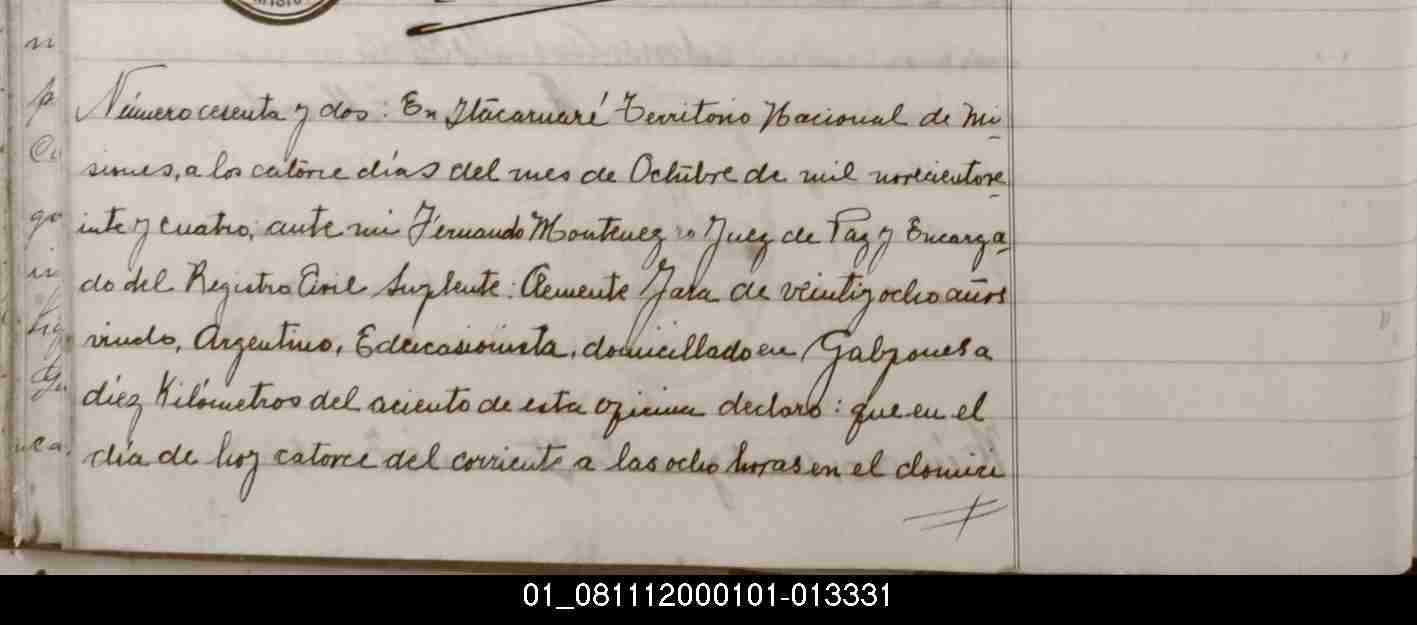 Número cesenta y dos: En Itacaruaré Territorio Nacional de Mi
siones, a los catorce días del mes de Octubre de mil novecientos ve
inte y cuatro, ante mi Fernando Montenegro Juez de Paz y Encarga
do del Registro Civil Suplente: Clemente Jara de veintiyocho años
viudo, Argentino, Educasionista, domicillado en Galpones a
diez Kilómetros del aciento de esta oficina declaro: que en el
día de hoy catorce del corriente a las ocho horas en el domici
01_081112000101-013331